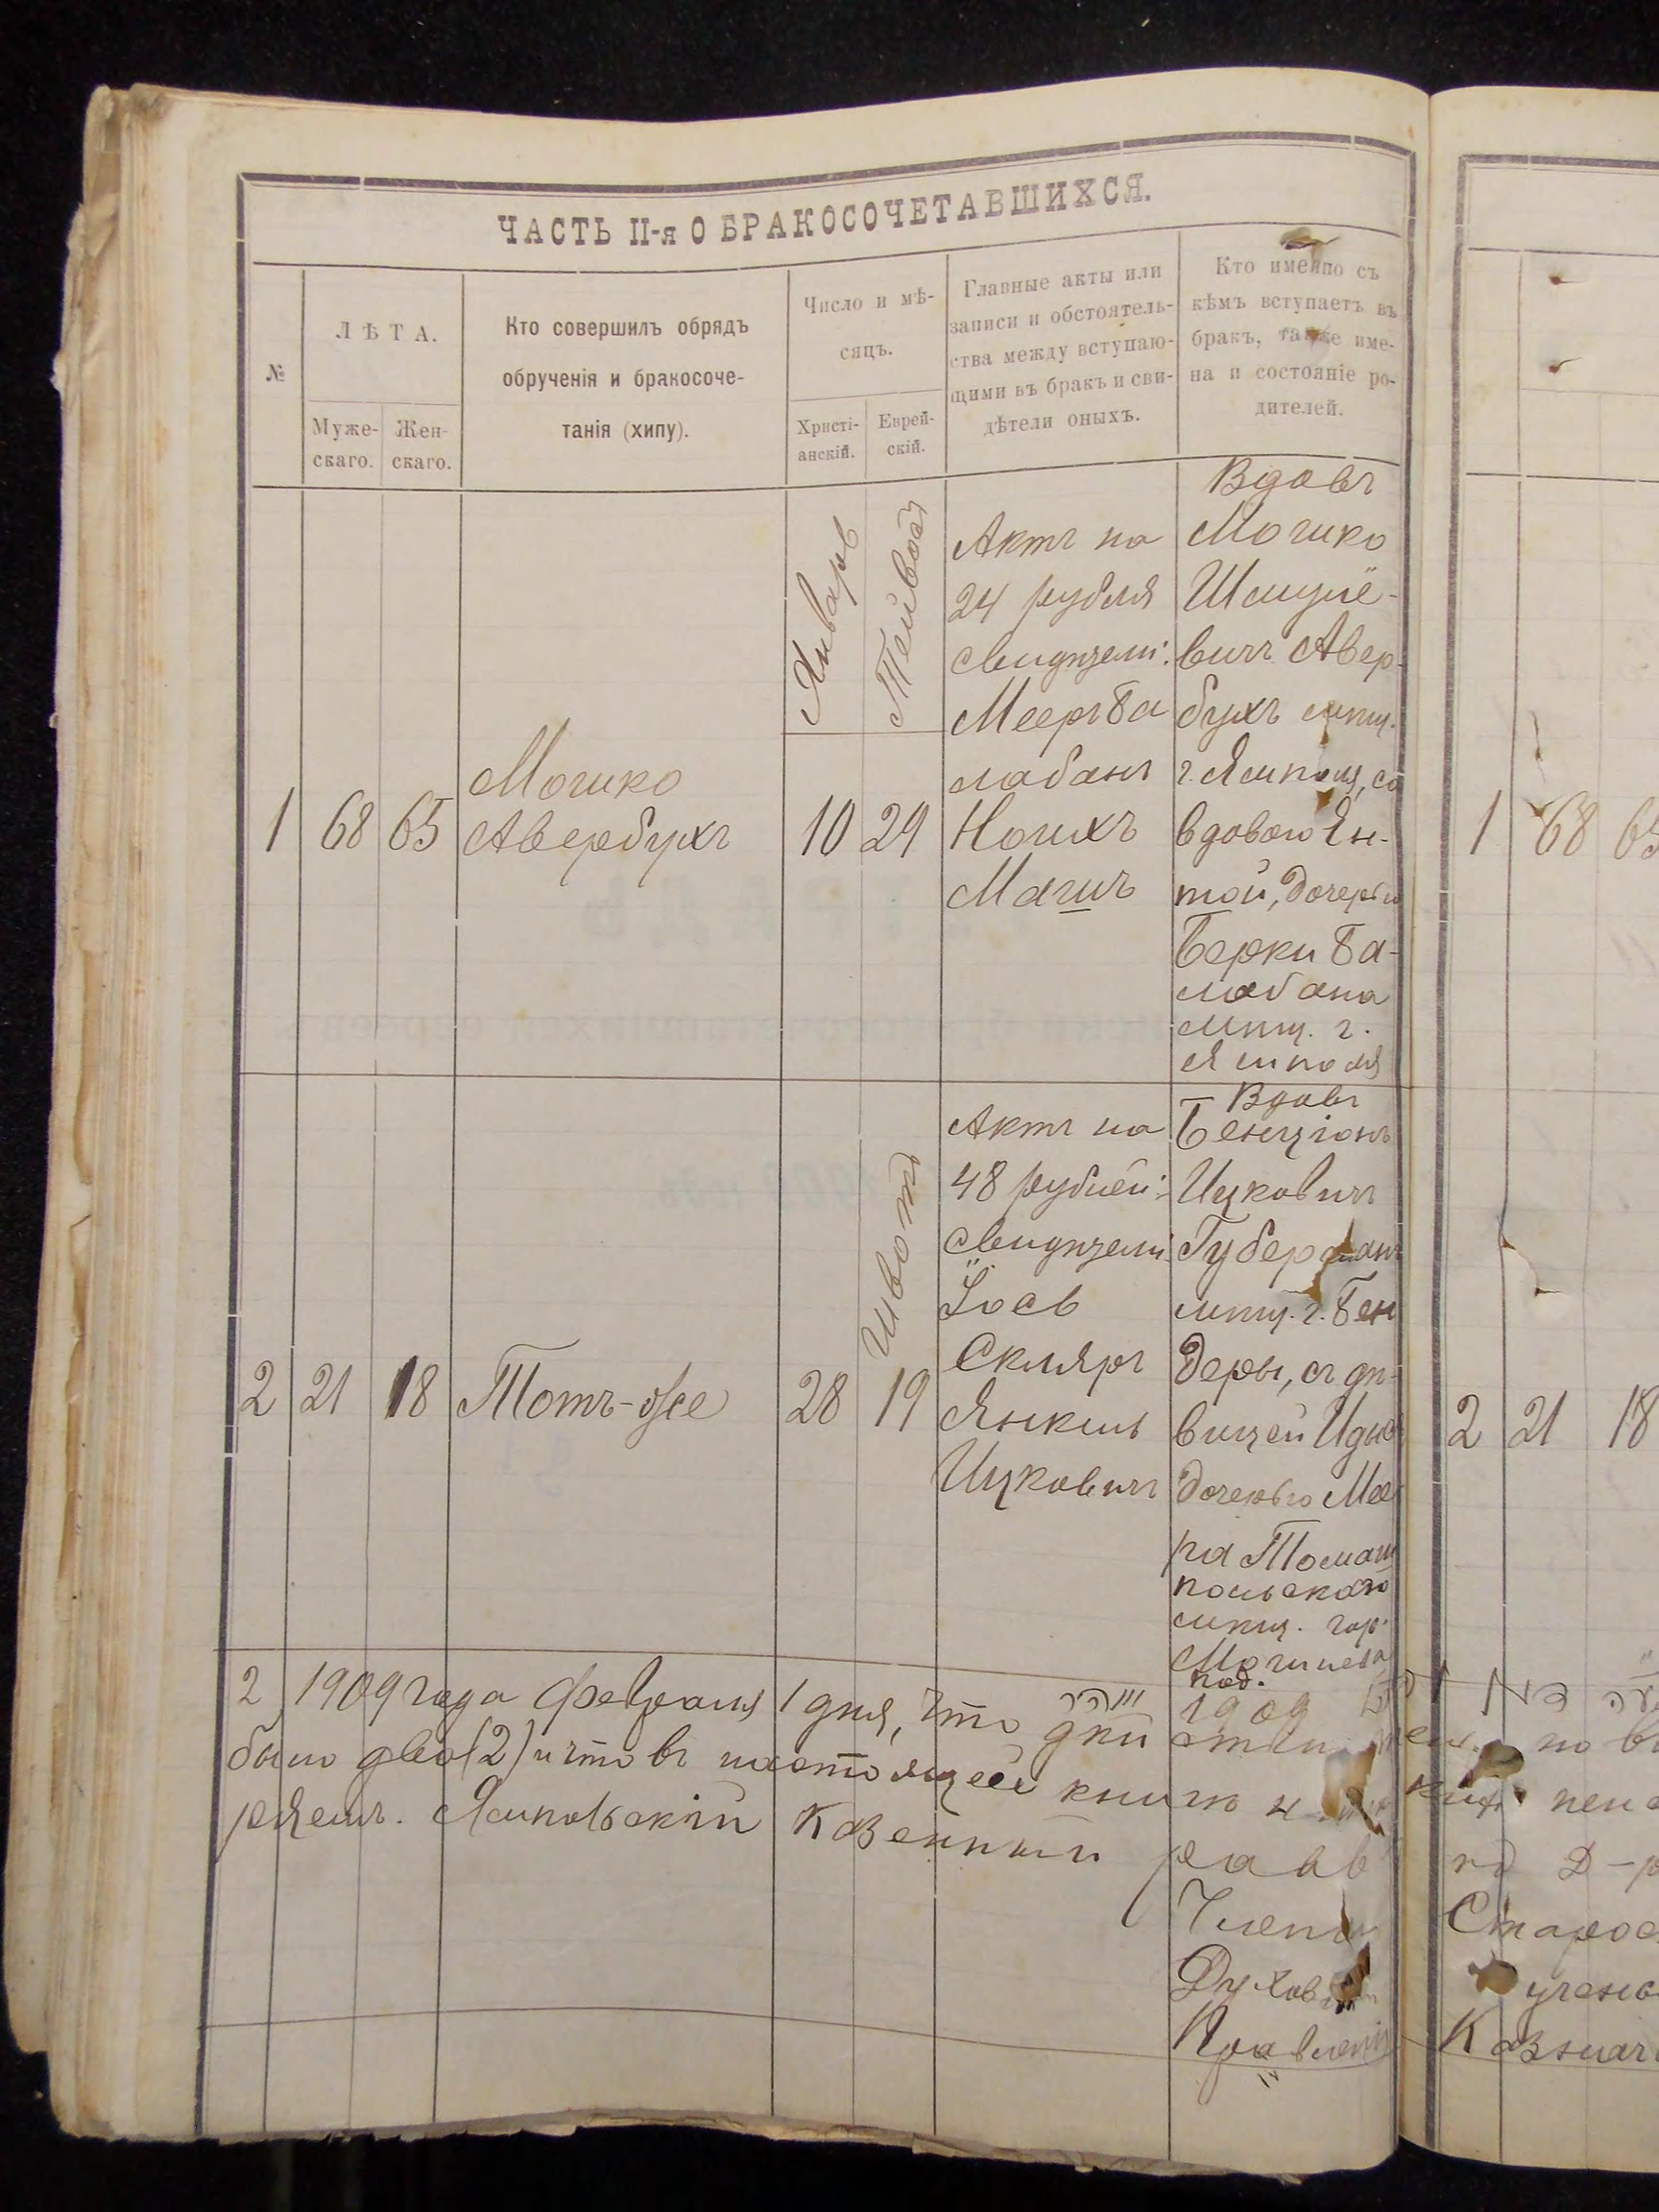 ЧАСТЬ II-я О БРАКОСОЧЕТАВШИХСЯ.
№
ЛѢТА.
Муже-
скаго.
Жен-
скаго.
Кто совершилъ обрядъ
обрученія и бракосоче-
танія (хипу).
Число и мѣ-
сяцъ.
Христі-
анскій.
Еврей-
скій.
Главные акты или
записи и обстоятель-
ства между вступаю-
щими въ бракъ и сви-
дѣтели оныхъ.
Кто именно съ
кѣмъ вступаетъ въ
бракъ, также име-
на и состояніе ро-
дителей.
1
68
65
Мошко
Авербухъ
Январь
10
Тейвеѳ
29
Актъ на
24 рубля
свидѣтели:
Мееръ Ба
лабанъ
Ноихъ
Магиъ
Вдовъ
Мошко
Шмулё-
вичъ Авер-
бухъ мѣщ.
г. Ямполя, со
вдовою Ен-
той, дочерью
Берки Ба-
лабана
мѣщ. г.
Ямполя
2
21
18
Тотъ-же
28
Шво��ъ
19
Актъ на
48 рублей:
свидѣтели:
Іось
Скляръ
Янкель
Ицковичъ
Вдовъ
Бенціонъ
Ицковичъ
Губерманъ
мѣщ. г. Бен
деры, съ дѣ-
вицей Идой
дочерью Мее
ра Томаш
польскаго
мѣщ. гор.
Могилева
под.
2 1909 года февраля 1 дня, что
было два (2) и что въ настоящей книгѣ
Ямпольскій Казенный равв
Члены
Духовн
Правленія
1
68
65
2
21
18
Старос
учено
Казнач